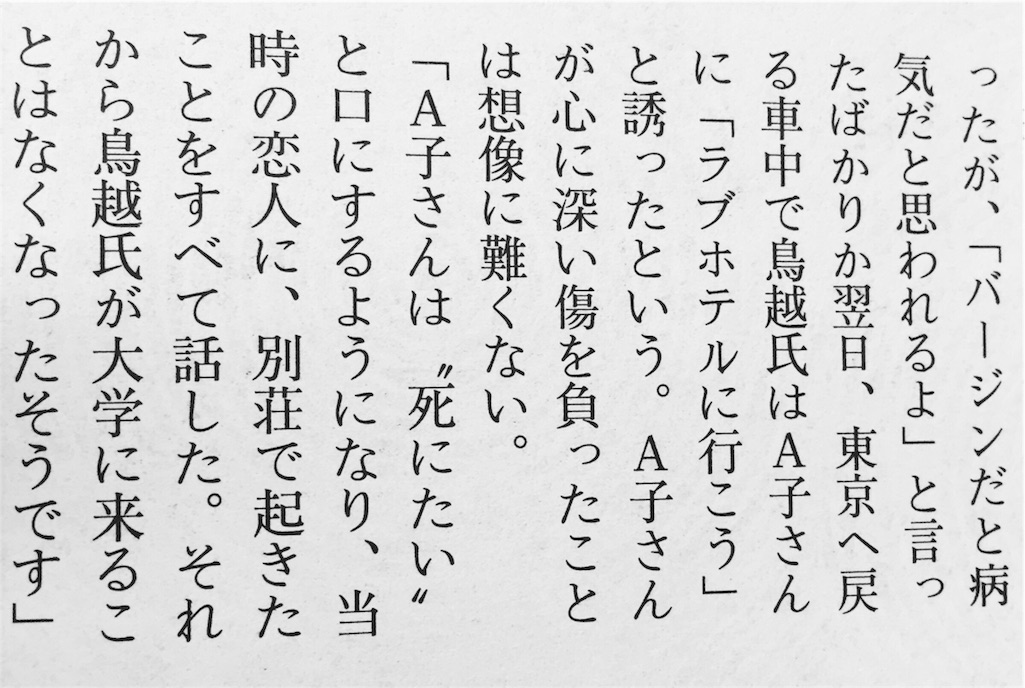 ったが、「バージンだと病
気だと思われるよ」と言っ
たばかりか翌日、東京へ戻
る車中で鳥越氏はA子さん
に「ラブホテルに行こう」
と誘ったという。A子さん
が心に深い傷を負ったこと
は想像に難くない。
「A子さんは〝死にたい〟
と口にするようになり、当
時の恋人に、別荘で起きた
ことをすべて話した。それ
から鳥越氏が大学に来るこ
とはなくなったそうです」